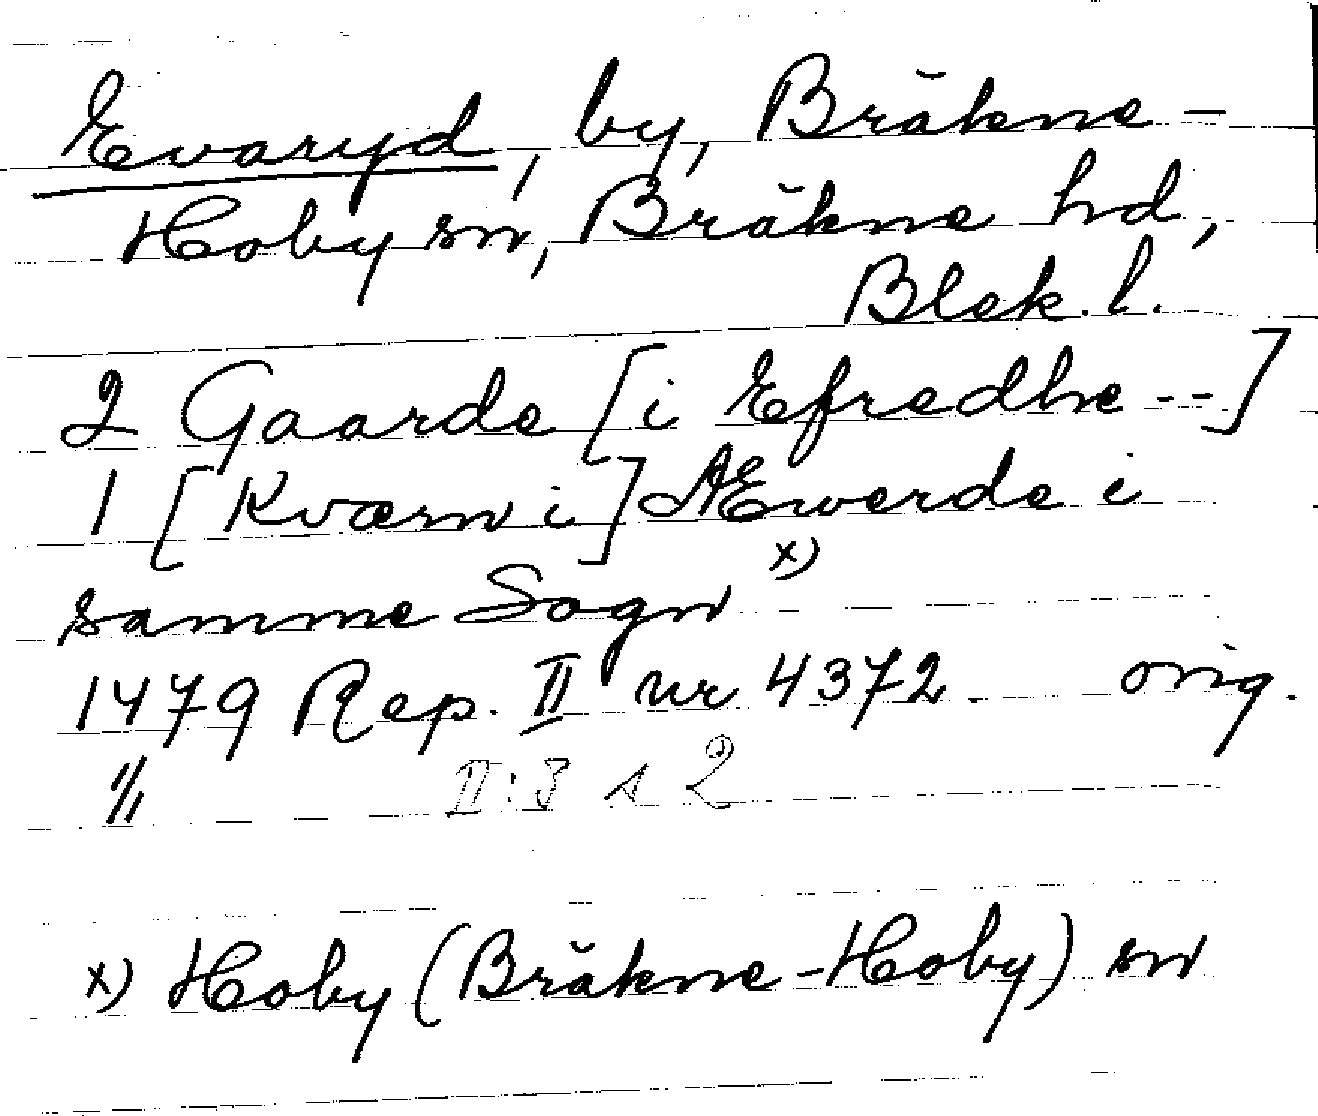 Evaryd, by, Bräkne-
Hoby sn, Bräkne hd,
Blek. l.
2 Gaarde [i Efredhe --]
1 [Kværn i] Æwerde i
samme Sogn x)
1479 Rep. II nr 4372. orig.
〃 II:3 s 2
x) Hoby (Bräkne-Hoby) sn